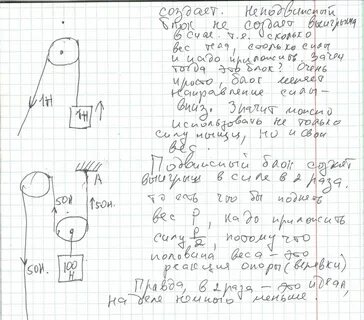 создает. Неподвижный
блок не создает выигрыша
в силе. т.е. сколько
вес тела, столько силы
и надо приложить. Зачем
тогда это блок? Очень
просто, блок меняет
направление силы -
вниз. Значит можно
использовать не только
силу мышц, но и свой
вес.
1Н
1Н
Подвижный блок создает
выигрыш в силе в 2 раза.
то есть что бы поднять
вес P, надо приложить
силу P/2, потому что
половина веса - это
реакция опоры (веревки)
Правда, в 2 раза - это идеал,
на деле немного меньше.
A
50Н
50Н
50Н.
100
Н